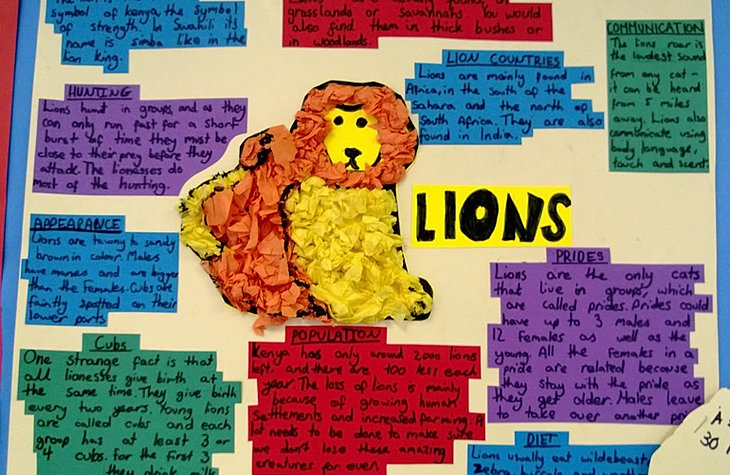 symbol of kenya, the symbol
of strength. In Swahili its
name is simba like in the
lion king.
grasslands or savannahs You would
also find them in thick bushes or
in woodlands.
COMMUNICATION
The lions roar is
the loudest sound
from any cat -
it can be heard
from 5 miles
away. Lions also
communicate using
body language,
touch and scent.
LION COUNTRIES
Lions are mainly found in
Africa, in the South of the
Sahara and the north of
South Africa. They are also
found in India.
HUNTING
Lions hunt in groups and as they
can only run fast for a short
burst of time they must be
close to their prey before they
attack. The lionesses do
most of the hunting.
LIONS
APPEARANCE
Lions are tawny to sandy
brown in colour. Males
have manes and are bigger
than the females. Cubs are
faintly spotted on their
lower parts
PRIDES
Lions are the only cats
that live in groups, which
are called prides. Prides could
have up to 3 males and
12 females as well as the
young. All the females in a
pride are related because
they stay with the pride as
they get older. Males leave
to take over another
Cubs
One strange fact is that
all lionesses give birth at
the same time. They give birth
every two years. Young lions
are called cubs and each
group has at least 3 or
4 cubs. for the first 3
they drink milk
POPULATION
Kenya has only around 2000 lions
left. and there are 100 less each
year. The loss of lions is mainly
because of growing human
settlements and increased farming. A
lot needs to be done to make sure
we don't lose these amazing
creatures for ever
DIET
Lions usually eat wildebeast,
zebra
30